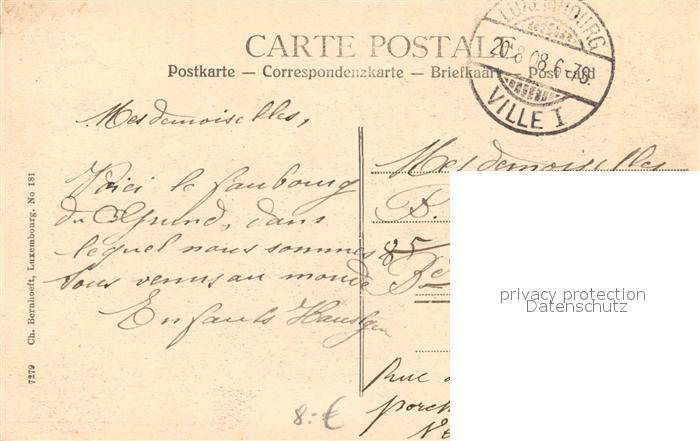 CARTE POSTALE
Postkarte — Correspondenzkarte — Briefkaart — Post card
LUXEMBOURG
20 8 08 6-7S
VILLE I
Mesdemoiselles,
Voici le faubourg
du Grund, dans
lequel nous sommes
tous venus au monde
Enfants
Mesdemoiselles
B.
85
Rue
7279 Ch. Bernhoeft, Luxembourg. No 181
privacy protection
Datenschutz
8.- €